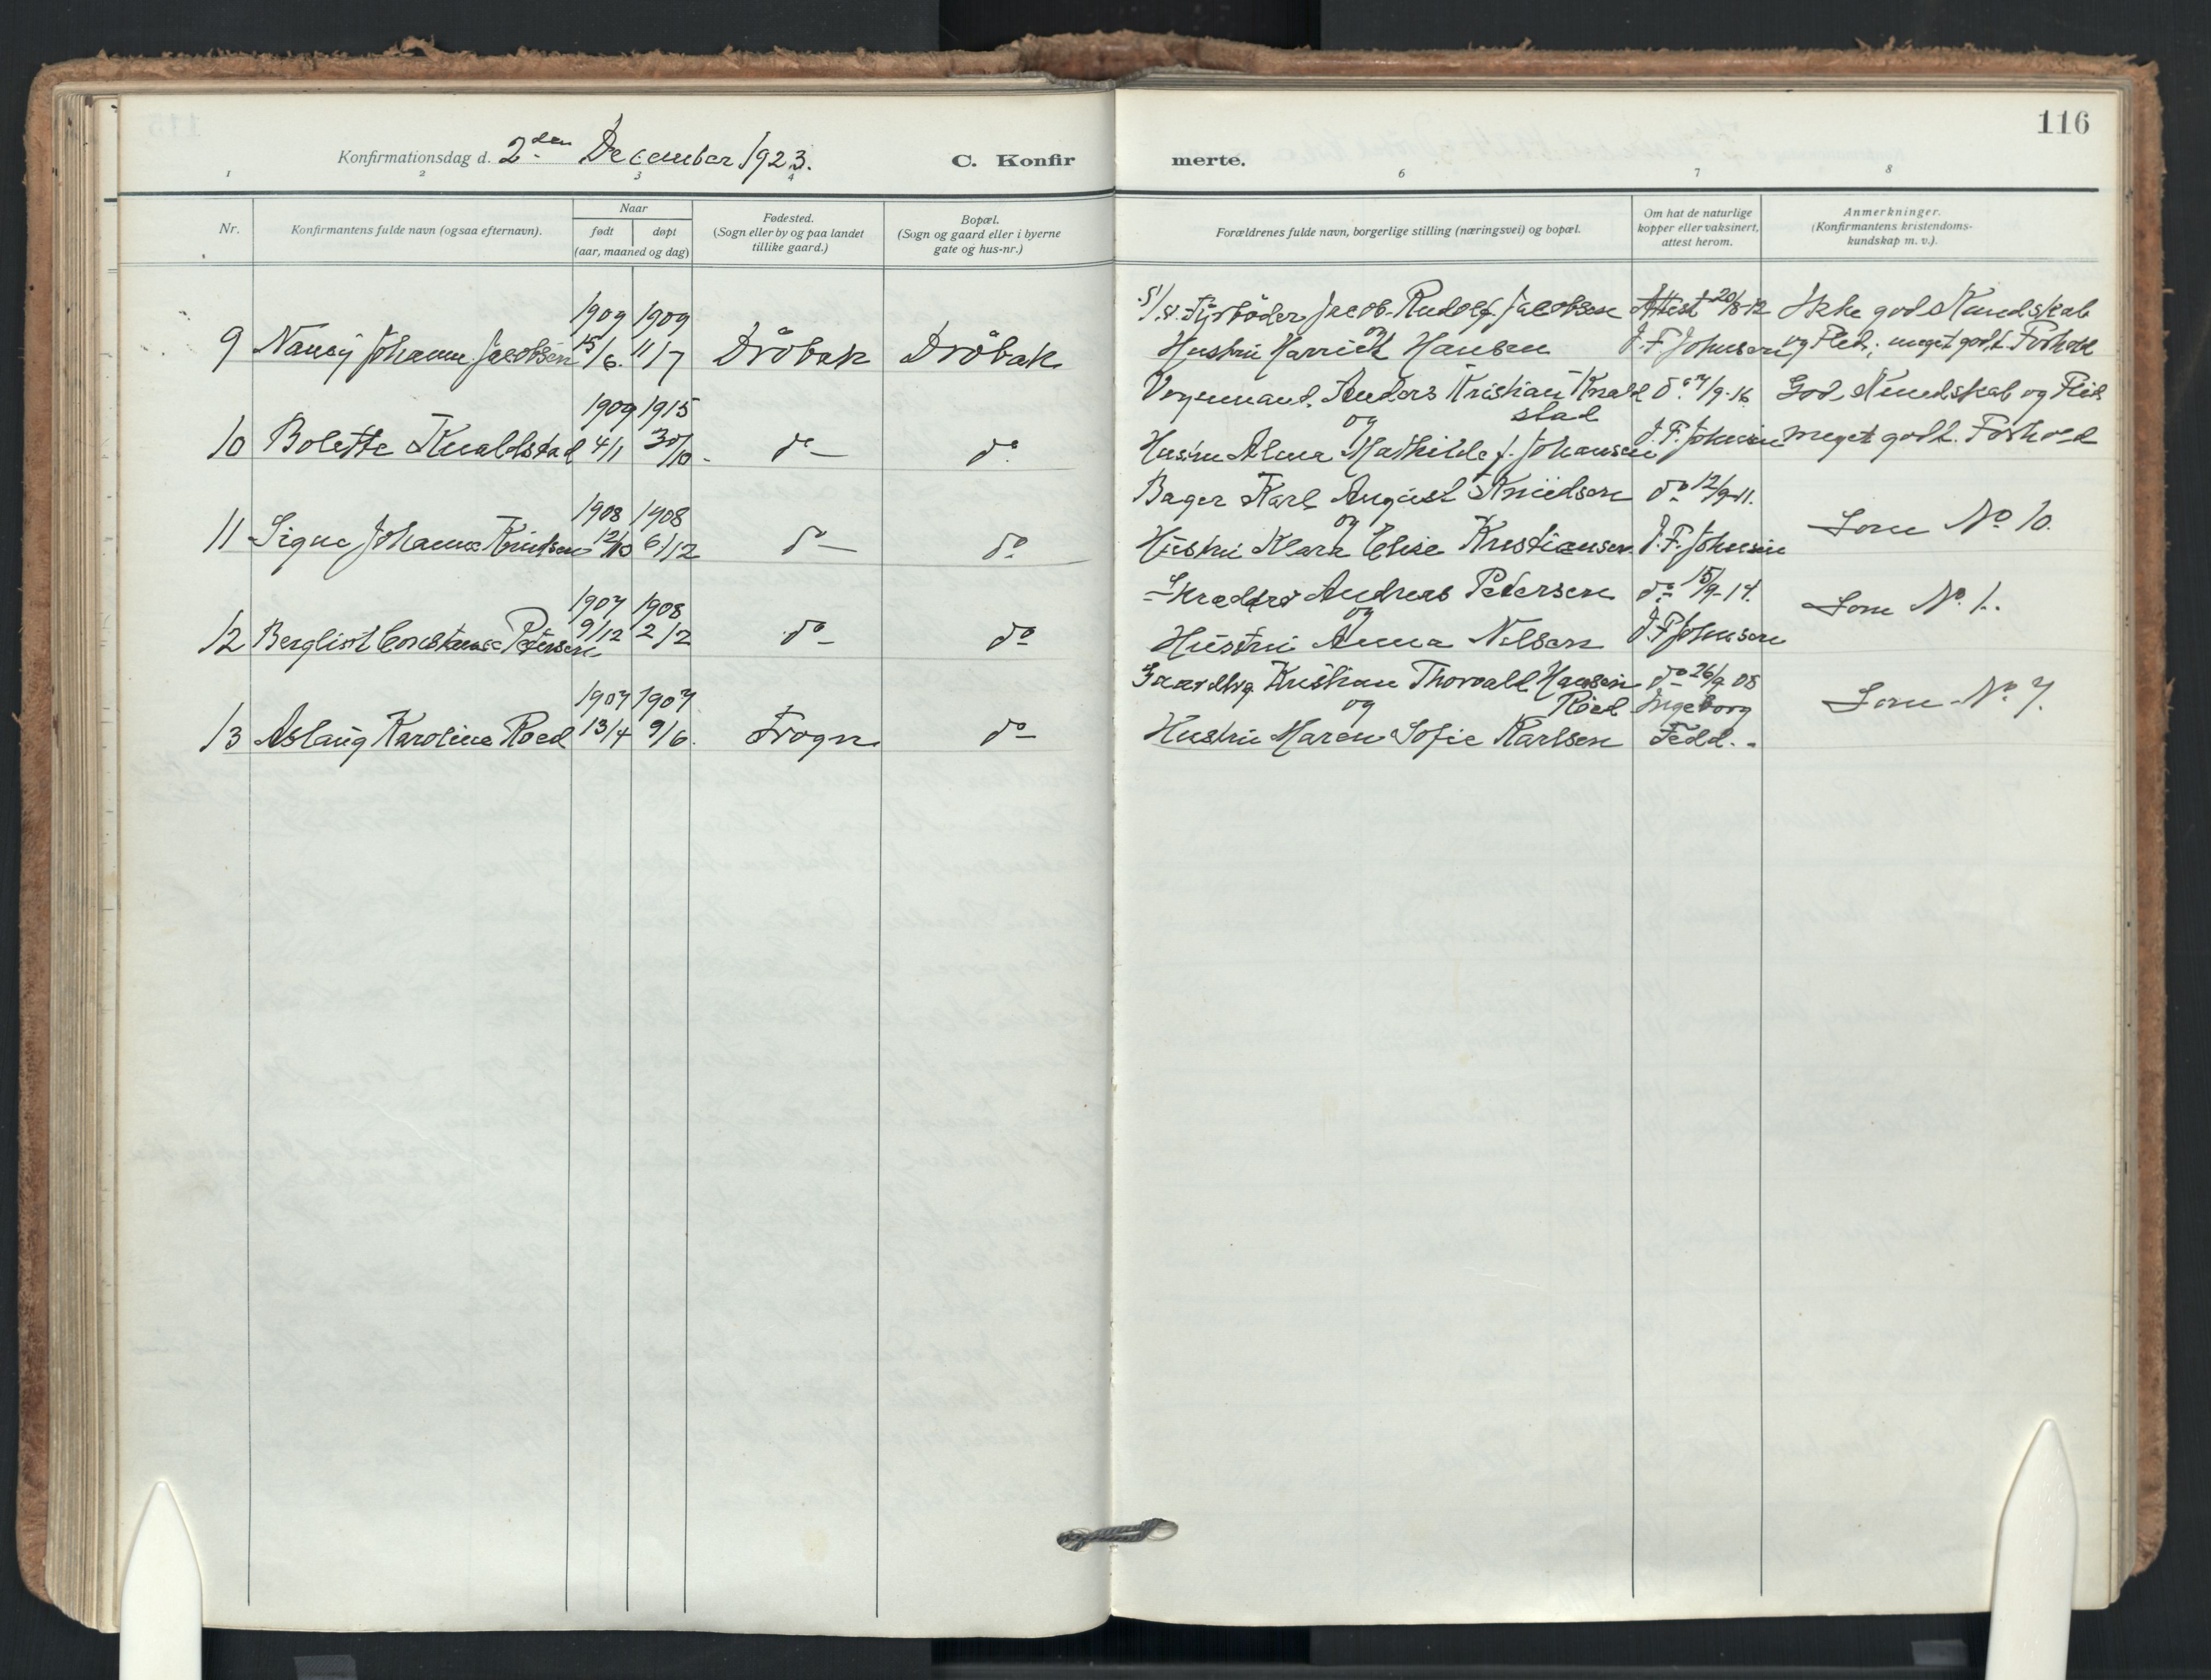 116
Konfirmationsdag d. 2den December 1923.
C. Konfir merte.
1 2 3 4 6 7 8
Nr.
Konfirmantens fulde navn (ogsaa efternavn).
Naar
født
døpt
(aar, maaned og dag)
Fødested.
(Sogn eller by og paa landet
tillike gaard.)
Bopæl.
(Sogn og gaard eller i byerne
gate og hus-nr.)
Forældrenes fulde navn, borgerlige stilling (næringsvei) og bopæl.
Om hat de naturlige
kopper eller vaksinert,
attest herom.
Anmerkninger.
(Konfirmantens kristendoms-
kundskap m. v.).
1909 1909
9 Nancy Johanne Jacobsen 15/6. 11/7 Dröbak Dröbak
Fyrböder Jacob Rudolf Jacobsen
og
Hustru Harriet Hansen
Attest 20/8-12
J. F. Johnsen
Ikke god Kundskab
og Flid; meget godt Forhold
1909 1915
10 Bolette Knaldstad 4/1 30/10. do do
Anders Kristian Knald
stad
og
Hustru Alma Mathilde f. Johansen
do 7/9-16
J. F. Johnsen
God Kundskab og Flid
meget godt. Forhold
1908 1908
11 Signe Johanne Knudsen 12/10 6/12 do do
Bager Karl August Knudsen
og
Hustru Klara Elise Kristiansen
do 12/9-11.
J. F. Johnsen
Som No 10.
1907 1908
12 Bergliot Constance Petersen 9/12 2/2 do do
Skrædder Andreas Petersen
og
Hustru Anna Nilsen
do 15/9-14.
J. F. Johnsen
Som No. 1.
1907 1907
13 Aslaug Karoline Roed 13/4 9/6. Frogn do
Kristian Thorvald Hansen
Roed
og
Hustru Maren Sofie Karlsen
do 26/9 08
Ingeborg
Fedd.
Som No. 7.